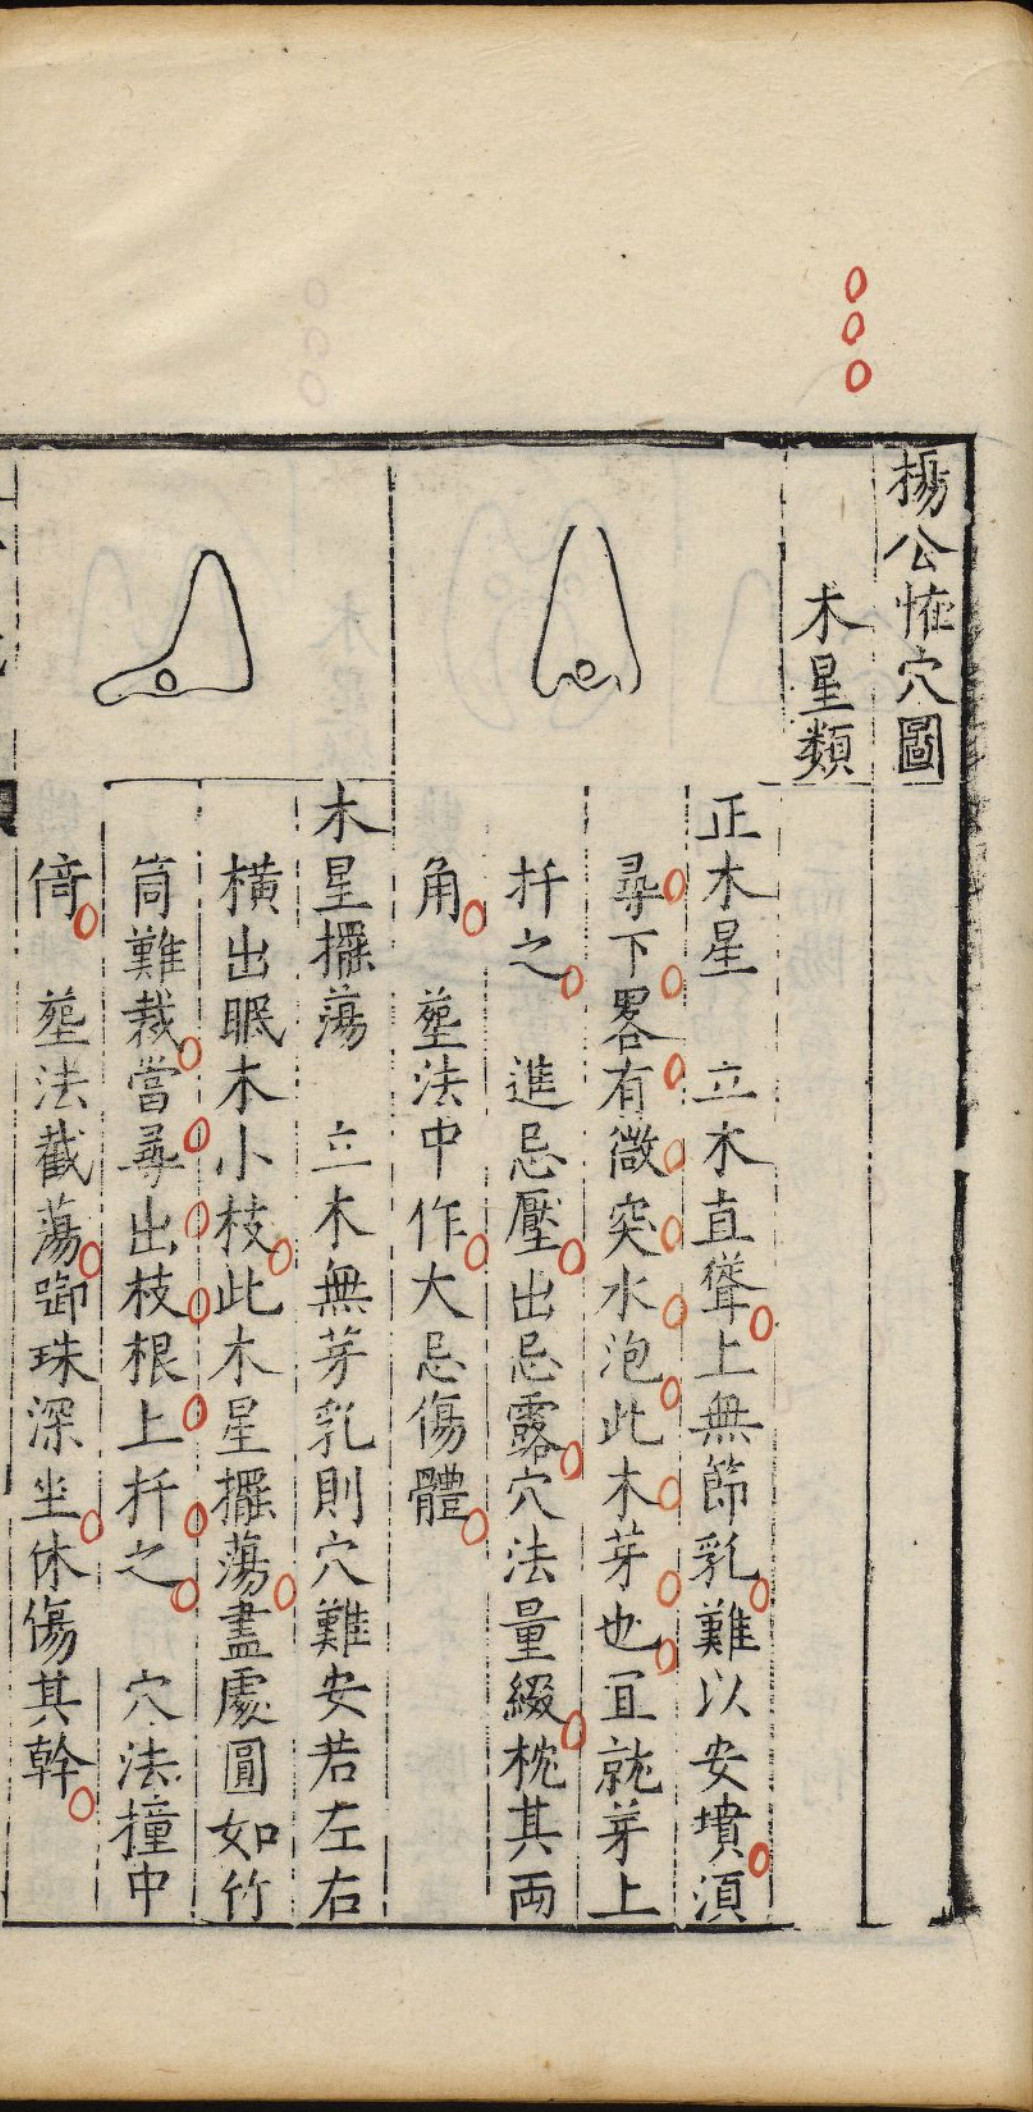 楊公怪穴圖
木星類
正木星　立木直聳上無節乳難以安墳須
尋下畧有微突水泡此木芽也宜就芽上
扦之　進忌壓出忌露穴法量綴枕其兩
角　塟法中作大忌傷體
木星擺蕩　立木無芽乳則穴難安若左右
橫出眠木小枝此木星擺蕩盡處圓如竹
筒難裁當尋出枝根上扦之　穴法撞中
倚　塟法截蕩啣珠深坐休傷其幹